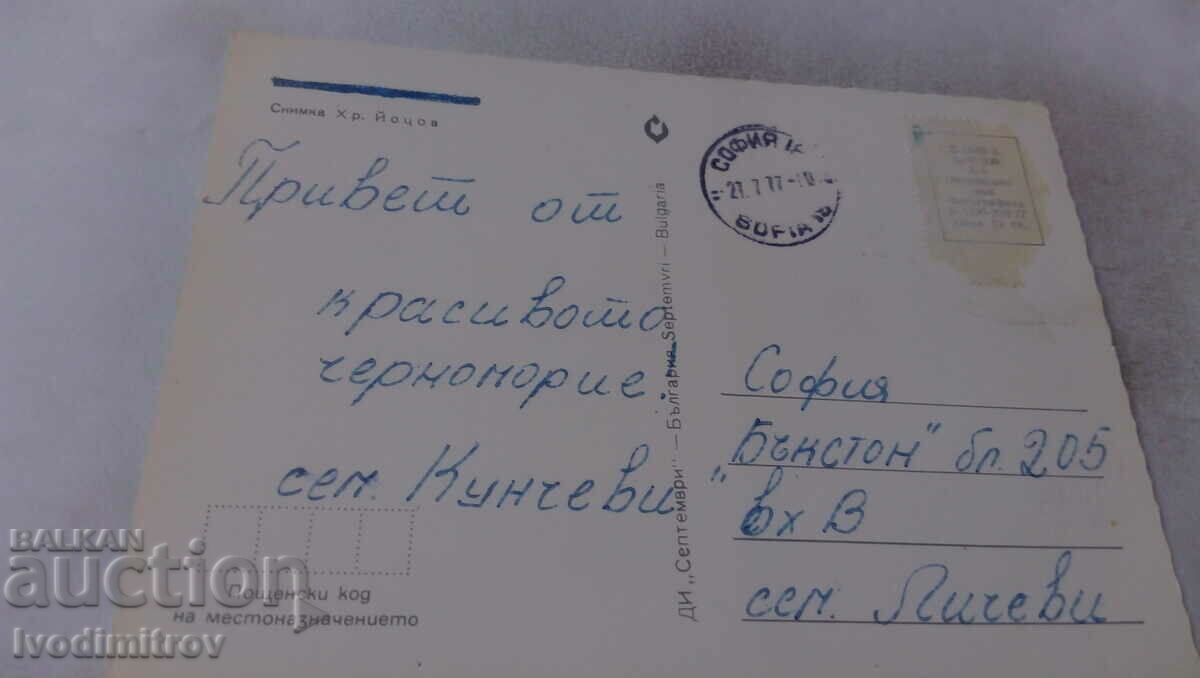 Снимка Хр. Йоцов
Привет от
красивото
черноморие.
сем. Кунчеви
Пощенски код
на местоназначението
ДИ „Септември" — България Septemvri — Bulgaria
СОФИЯ
27.7.77
SOFIA
София
"Бъкстон" бл. 205
вх В
сем. Личеви
BALKAN
auction
Ivodimitrov